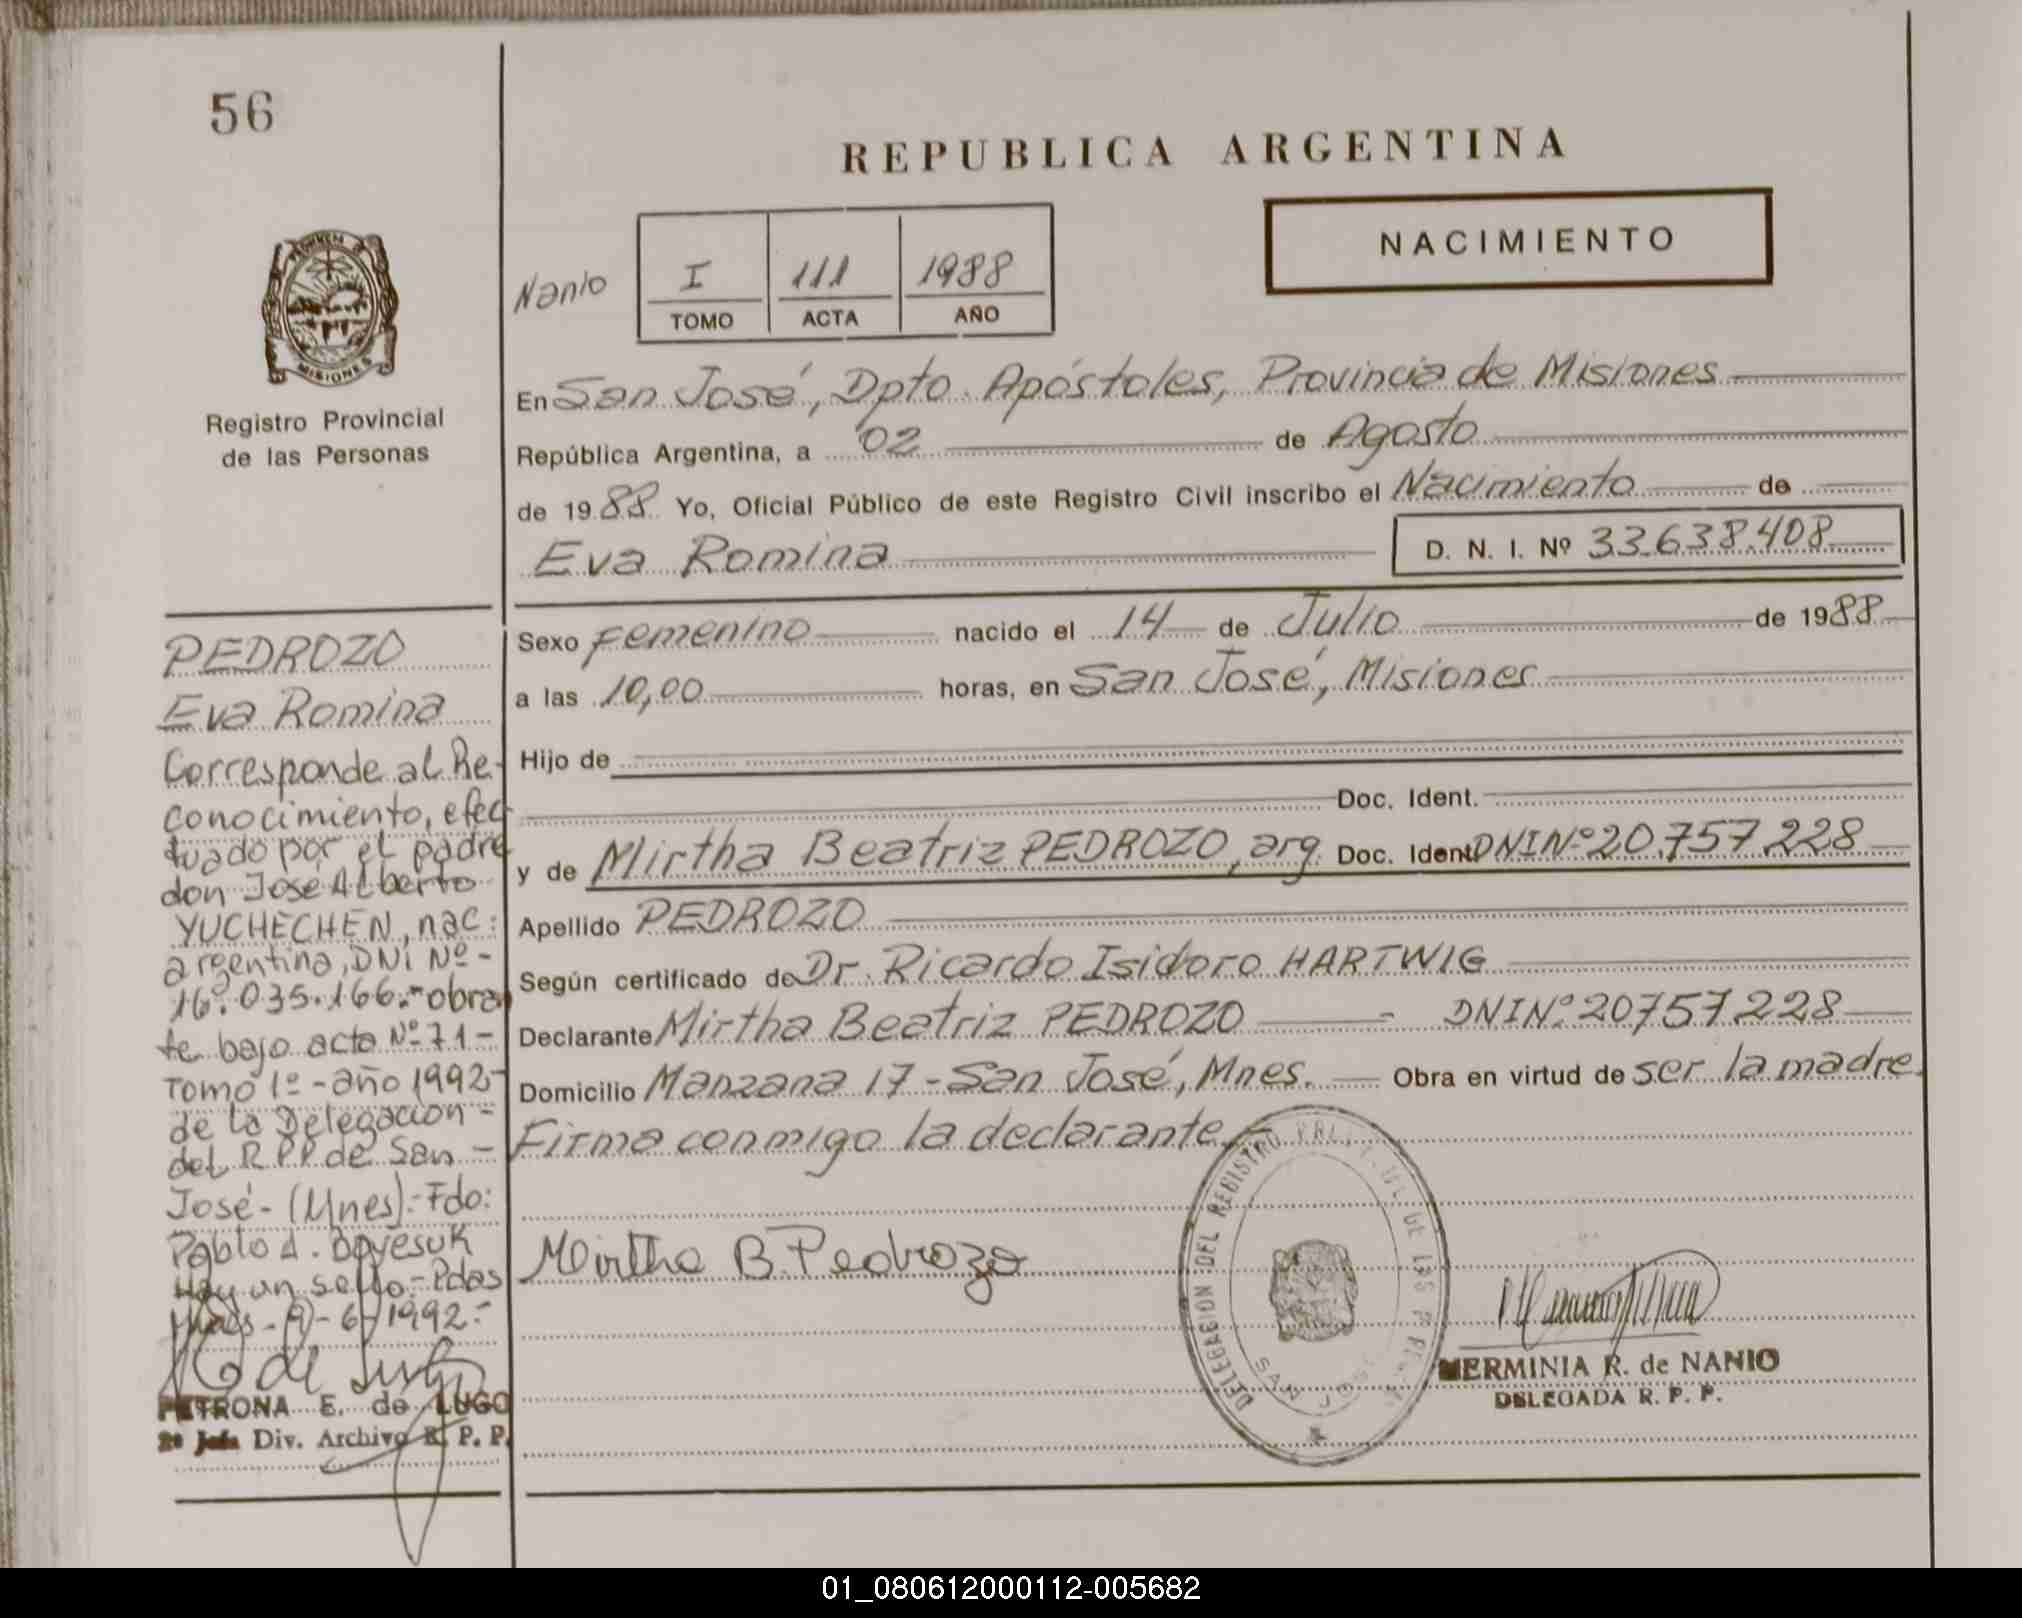 56
REPUBLICA ARGENTINA
NACIMIENTO
Nanio
I 111 1988
TOMO ACTA AÑO
PROVINCIA
MISIONES
Registro Provincial
de las Personas
En San José, Dpto. Apóstoles, Provincia de Misiones
República Argentina, a 02 de Agosto
de 1988 Yo, Oficial Público de este Registro Civil inscribo el Nacimiento de
Eva Romina D. N. I. Nº 33.638.408
Sexo Femenino nacido el 14 de Julio de 1988
a las 10,00 horas, en San José, Misiones
Hijo de
Doc. Ident.
y de Mirtha Beatriz PEDROZO, arg. Doc. Ident. DNI Nº 20.757.228
Apellido PEDROZO
Según certificado de Dr. Ricardo Isidoro HARTWIG
Declarante Mirtha Beatriz PEDROZO - DNI Nº 20757.228
Domicilio Manzana 17 - San José, Mnes. Obra en virtud de ser la madre.
Firma conmigo la declarante.-
Mirtha B. Pedrozo
DELEGACION DEL REGISTRO DE LAS
SAN JOSE
HERMINIA R. de NANIO
DELEGADA R. P. P.
PEDROZO
Eva Romina
Corresponde al Re-
conocimiento, efec
tuado por el padre
don José Alberto
YUCHECHEN, nac:
argentina, DNI Nº-
16.035.166.- obran
te bajo acta Nº 71-
Tomo 1º - año 1992-
de la Delegacion -
del R P P. de San -
José - (Mnes).- Fdo:
Pablo A. Boyesuk
Hay un sello.- Pdas
Mnes - 9 - 6 - 1992.-
PETRONA E. de LUGO
2º Jefa Div. Archivo R. P. P.
01_080612000112-005682